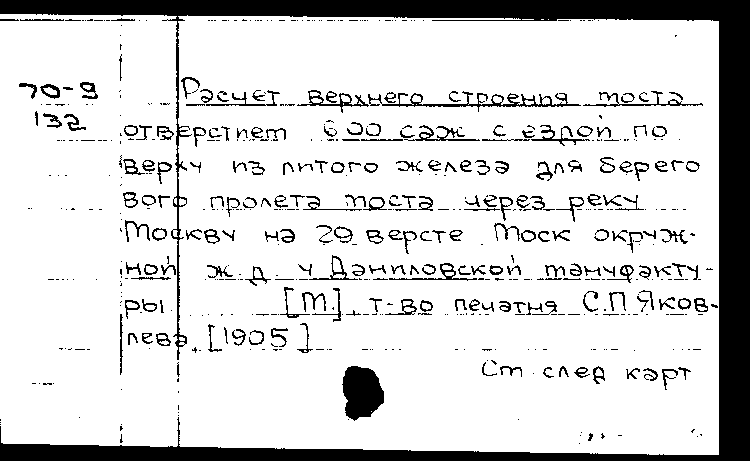 70-9
132
Расчет верхнего строения моста
отверстием 6 00 саж с ездой по
верху из литого железа для берего
вого пролета моста через реку
Москву на 29 версте Моск окруж-
ной ж д у Даниловской мануфакту-
ры [М], т-во печатня С.П Яков-
лева, [1905]
См след карт